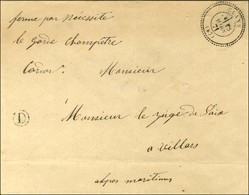 fermé par nécessité
le garde champêtre
Monsieur
Monsieur le juge de Paix
D
a villars
alpes maritimes